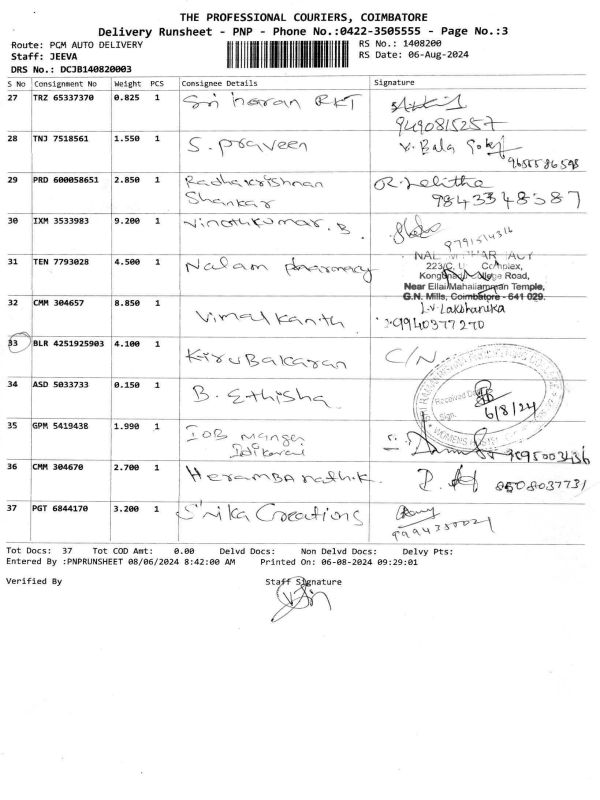 THE PROFESSIONAL COURIERS, COIMBATORE
Delivery Runsheet - PNP - Phone No.:0422-3505555 - Page No.:3
Route: PGM AUTO DELIVERY
RS No.: 1408200
Staff: JEEVA
RS Date: 06-Aug-2024
DRS No.: DCJB140820003
S No Consignment No Weight PCS Consignee Details Signature
27 TRZ 65337370 0.825 1 Sri haran RKT
9490815257
28 TNJ 7518561 1.550 1 S. Praveen V. Bala
9655586598
29 PRD 600058651 2.850 1 Radhakrishnan Shankar R. Lelitha
9843348587
30 IXM 3533983 9.200 1 Vinothkumar. B
9791514316
31 TEN 7793028 4.500 1 Nalam pharmacy
223/C, Complex,
Road,
Near Ellai Mahaliamman Temple,
G.N. Mills, Coimbatore - 641 029.
32 CMM 304657 8.850 1 Vimal Kanith L.V. Lakshanika
9940377270
33 BLR 4251925903 4.100 1 Kirubakaran C/N
34 ASD 5033733 0.150 1 B. Ethisha
Received
Sign.
6/8/24
WOMENS
35 GPM 5419438 1.990 1 IOB manger
36 CMM 304670 2.700 1 HerambaNath.K
8508037731
37 PGT 6844170 3.200 1 Srika Creations
Tot Docs: 37 Tot COD Amt: 0.00 Delvd Docs: Non Delvd Docs: Delvy Pts:
Entered By :PNPRUNSHEET 08/06/2024 8:42:00 AM Printed On: 06-08-2024 09:29:01
Verified By Staff Signature